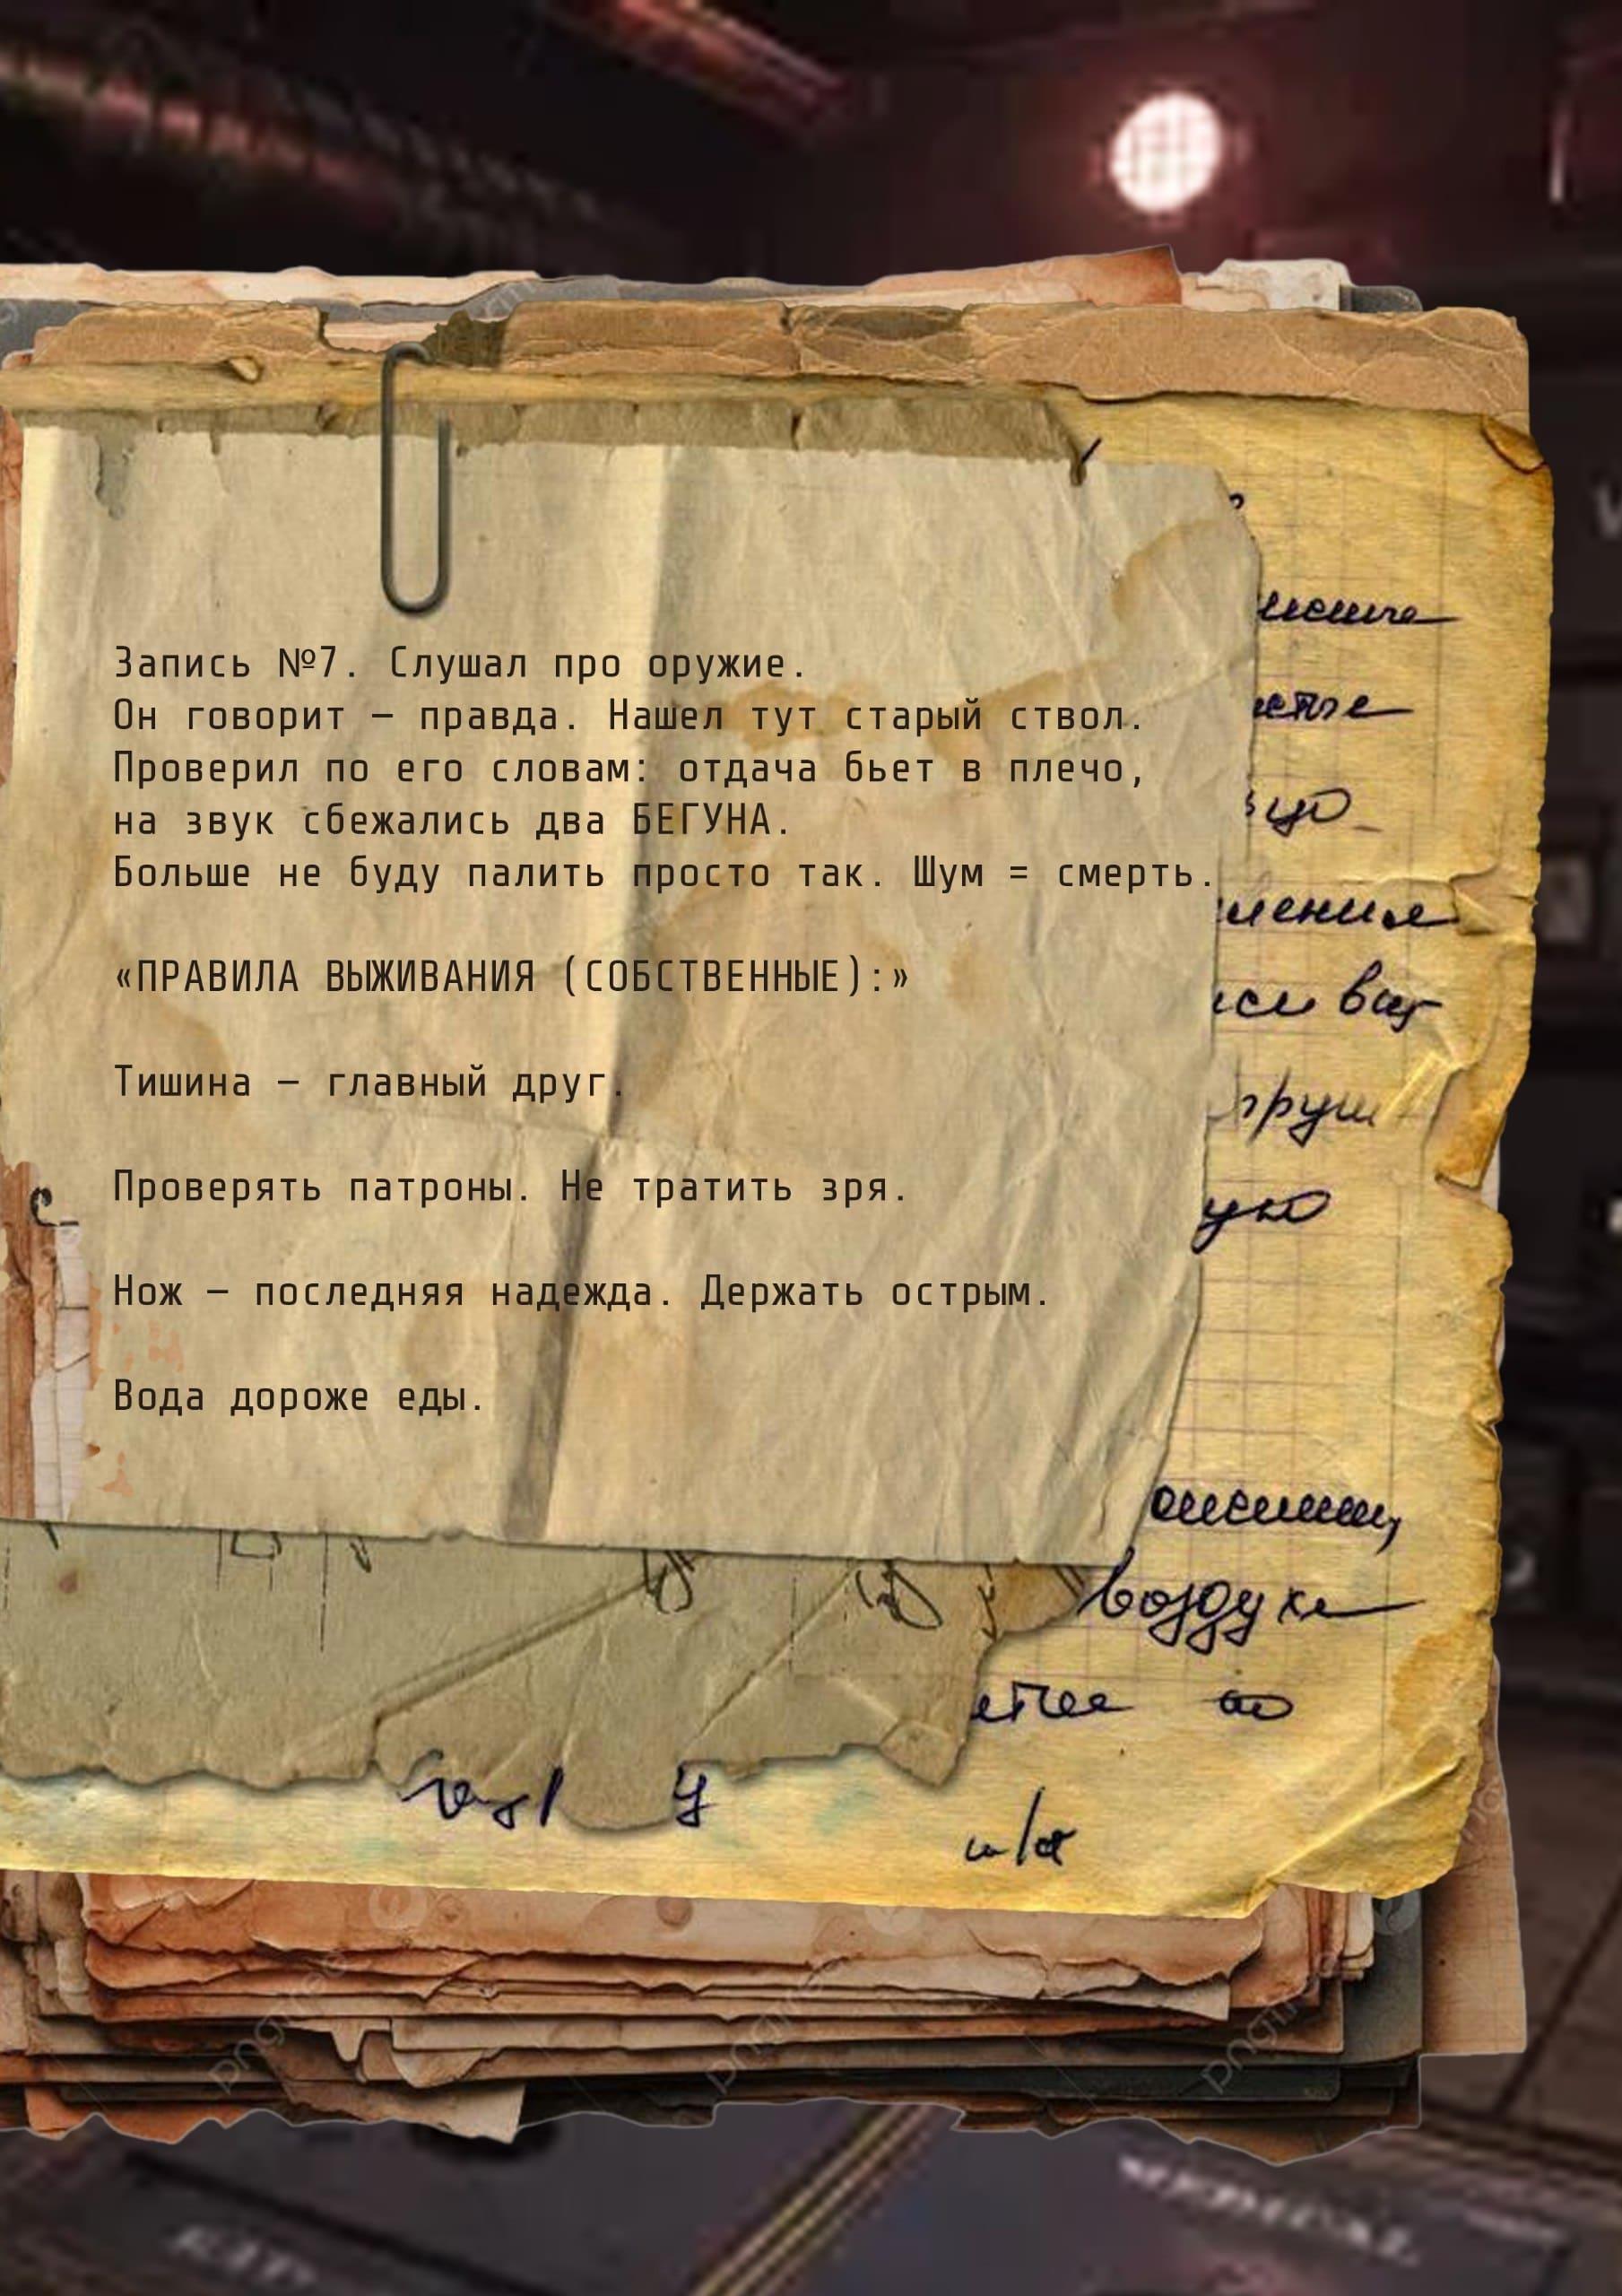 Запись №7. Слушал про оружие.
Он говорит — правда. Нашел тут старый ствол.
Проверил по его словам: отдача бьет в плечо,
на звук сбежались два БЕГУНА.
Больше не буду палить просто так. Шум = смерть.
«ПРАВИЛА ВЫЖИВАНИЯ (СОБСТВЕННЫЕ):»
Тишина — главный друг.
Проверять патроны. Не тратить зря.
Нож — последняя надежда. Держать острым.
Вода дороже еды.
воздухе